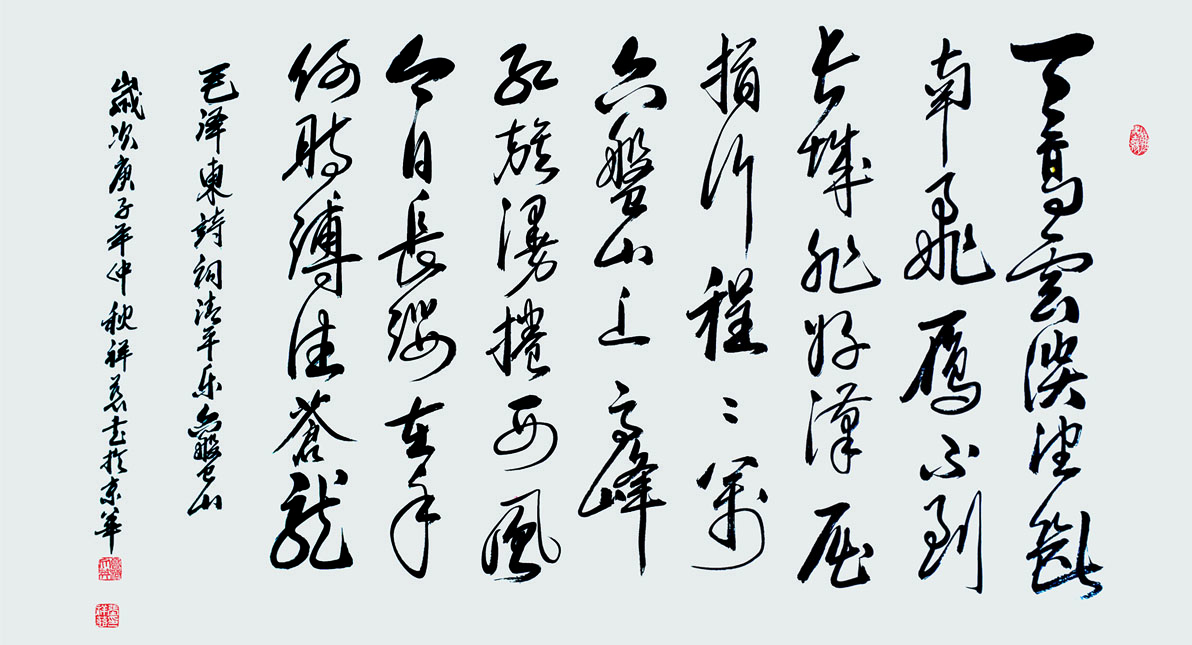 天高雲淡望斷
南飛雁不到
长城非好漢屈
指行程二萬
六盤山上高峰
红旗漫捲西風
今日長纓在手
何時縛住蒼龍
毛泽東詩詞清平乐六盤山
歲次庚子年仲秋祥书於京華